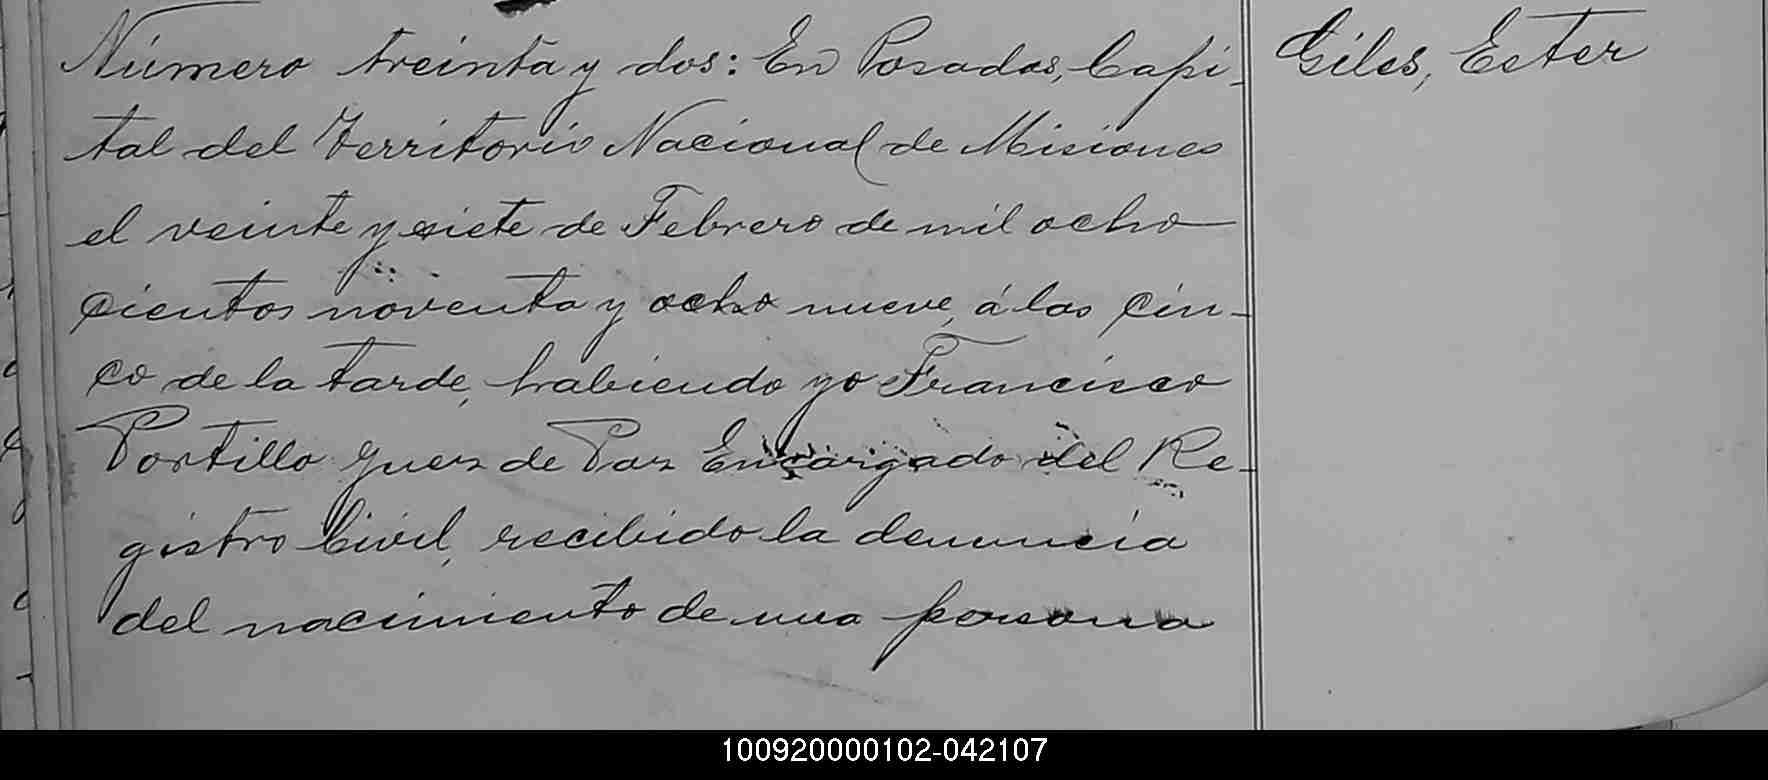 Número treinta y dos: En Posadas, Capi-
tal del Territorio Nacional de Misiones
el veinte y siete de Febrero de mil ocho
cientos noventa y ocho nueve, á las cin-
co de la tarde, habiendo yo Francisco
Portillo Juez de Paz Encargado del Re-
gistro Civil, recibido la denuncia
del nacimiento de una persona
Giles, Ester
100920000102-042107